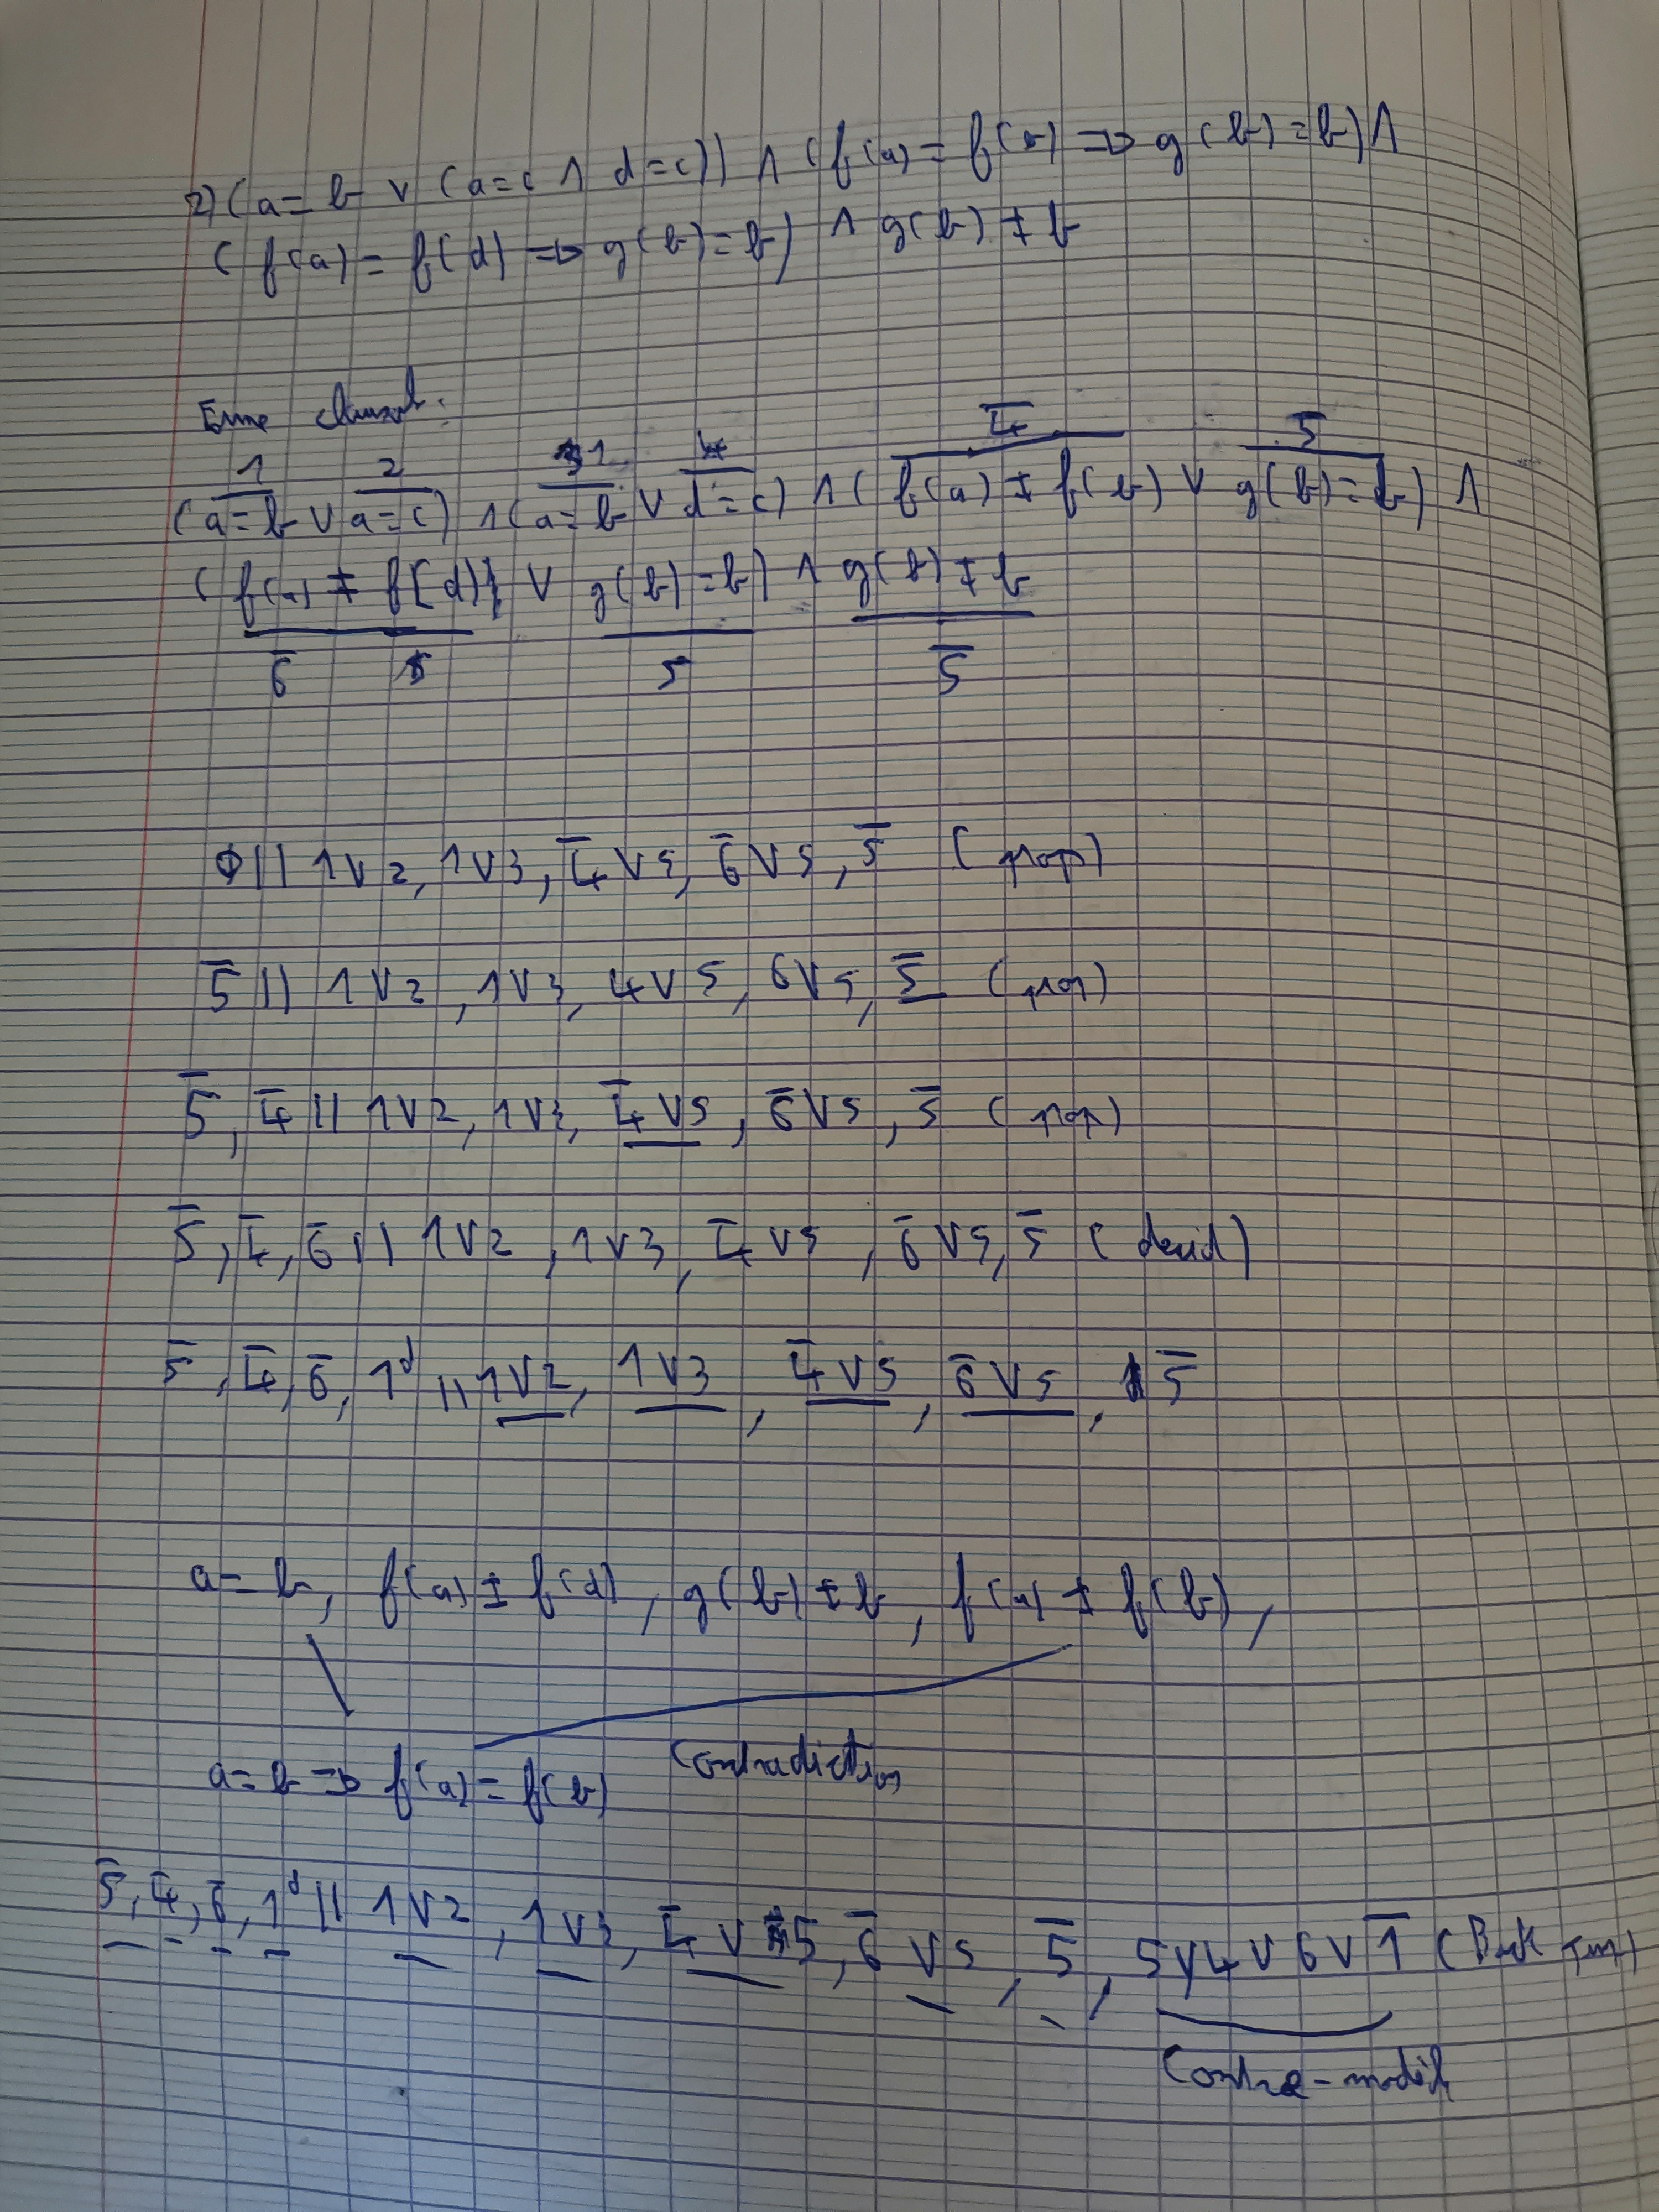 2) (a = b ∨ (a = c ∧ d = c)) ∧ (f(a) = f(b) => g(b) = b) ∧
(f(a) = f(d) => g(b) = b) ∧ g(b) ≠ b
clausale:
1 2 1 4 4̅ 5̅
(a = b ∨ a = c) ∧ (a = b ∨ d = c) ∧ (f(a) ≠ f(b) ∨ g(b) = b) ∧
(f(a) ≠ f(d) ∨ g(b) = b) ∧ g(b) ≠ b
6̅ 5 5̅
∅ || 1∨2, 1∨3, 4̅∨5, 6̅∨5, 5̅ (prop)
5̅ || 1∨2, 1∨3, 4∨5, 6∨5, 5̅ (prop)
5̅, 4̅ || 1∨2, 1∨3, 4̅∨5, 6̅∨5, 5̅ (prop)
5̅, 4̅, 6̅ || 1∨2, 1∨3, 4̅∨5, 6̅∨5, 5̅ (decid)
5̅, 4̅, 6̅, 1ᵈ || 1∨2, 1∨3, 4̅∨5, 6̅∨5, 5̅
a = b, f(a) ≠ f(d), g(b) ≠ b, f(a) ≠ f(b),
a = b => f(a) = f(b) Contradiction
5̅, 4̅, 6̅, 1ᵈ || 1∨2, 1∨3, 4̅∨5, 6̅∨5, 5̅, 5∨4∨6∨1̅ (Back
Contre-modèle